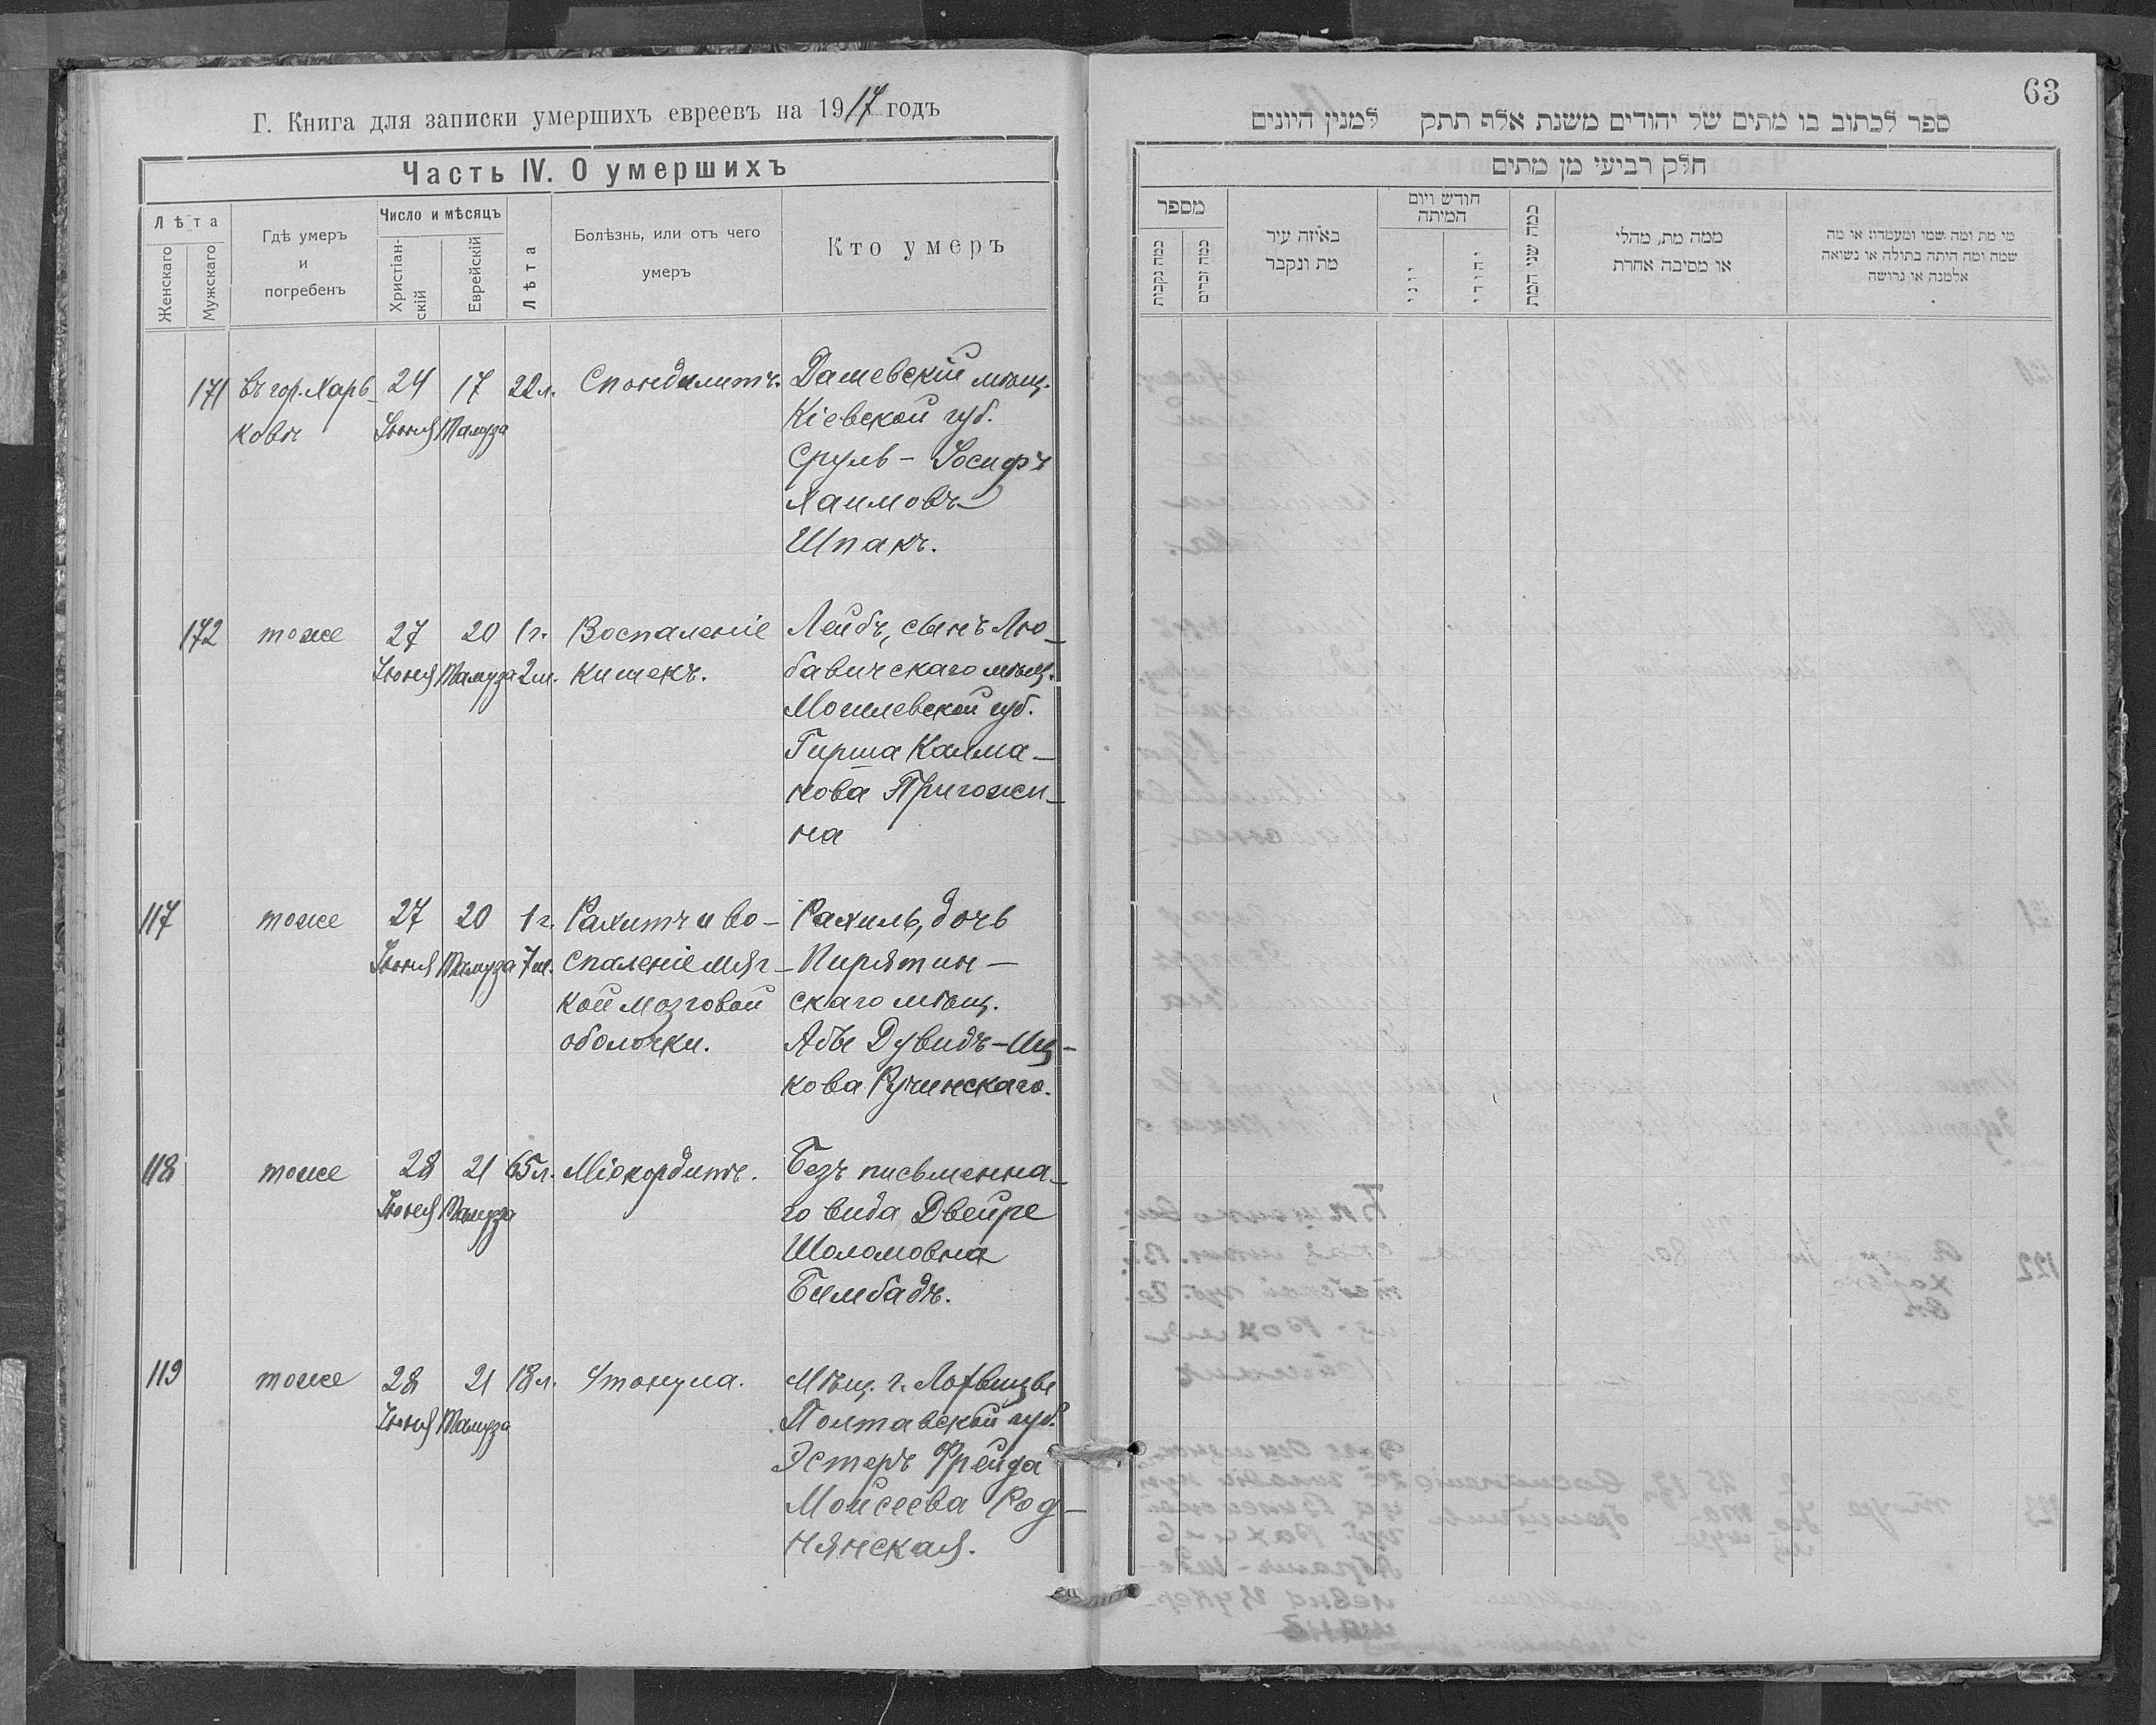 Г. Книга для записки умершихъ евреевъ на 1917 годъ
Часть IV. О умершихъ
Лѣта
Женскаго
Мужскаго
Гдѣ умеръ
и
погребенъ
Число и мѣсяцъ
Христіан-
скій
Еврейскій
Лѣта
Болѣзнь, или отъ чего
умеръ
Кто умеръ
171
Въ гор. Харь-
ковѣ
24
Іюня
17
Тамуза
22 л.
Спондилитъ.
Дашевскій мѣщ.
Кіевской губ.
Сруль - Іосифъ
Хаимовъ
Шпакъ.
172
тоже
27
Іюня
20
Тамуза
1 г.
2 м.
Воспаленіе
кишекъ.
Лейбъ, сынъ Лю-
бавичскаго мѣщ.
Могилевской губ.
Гирша Калма-
нова Пригожи-
на
117
тоже
27
Іюня
20
Тамуза
1 г.
7 м.
Рахитъ и во-
спаленіе мяг-
кой мозговой
оболочки.
Рахиль, дочь
Пирятин-
скаго мѣщ.
Абы Дувидъ-Иц-
кова Ручинскаго.
118
тоже
28
Іюня
21
Тамуза
65 л.
Міокордитъ.
Безъ письменна-
го вида Двейре
Шоломовна
Бимбадъ.
119
тоже
28
Іюня
21
Тамуза
18 л.
Утонула.
Мѣщ. г. Лохвицы
Полтавской губ.
Эстеръ Фрейда
Моисеева Род-
нянская.
63
ספר לכתוב בו מתים של יהודים משנת אלף תתק למנין היונים
חלק רביעי מן מתים
מספר
כמה נקבות
כמה זכרים
באיזה עיר
מת ונקבר
חודש ויום
המיתה
יוני
יהודי
כמה שני המת
ממה מת, מחלי
או מסיבה אחרת
מי מת ומה שמו ומעמדו: או מה
שמה ומה היתה בתולה או נשואה
אלמנה או גרושה